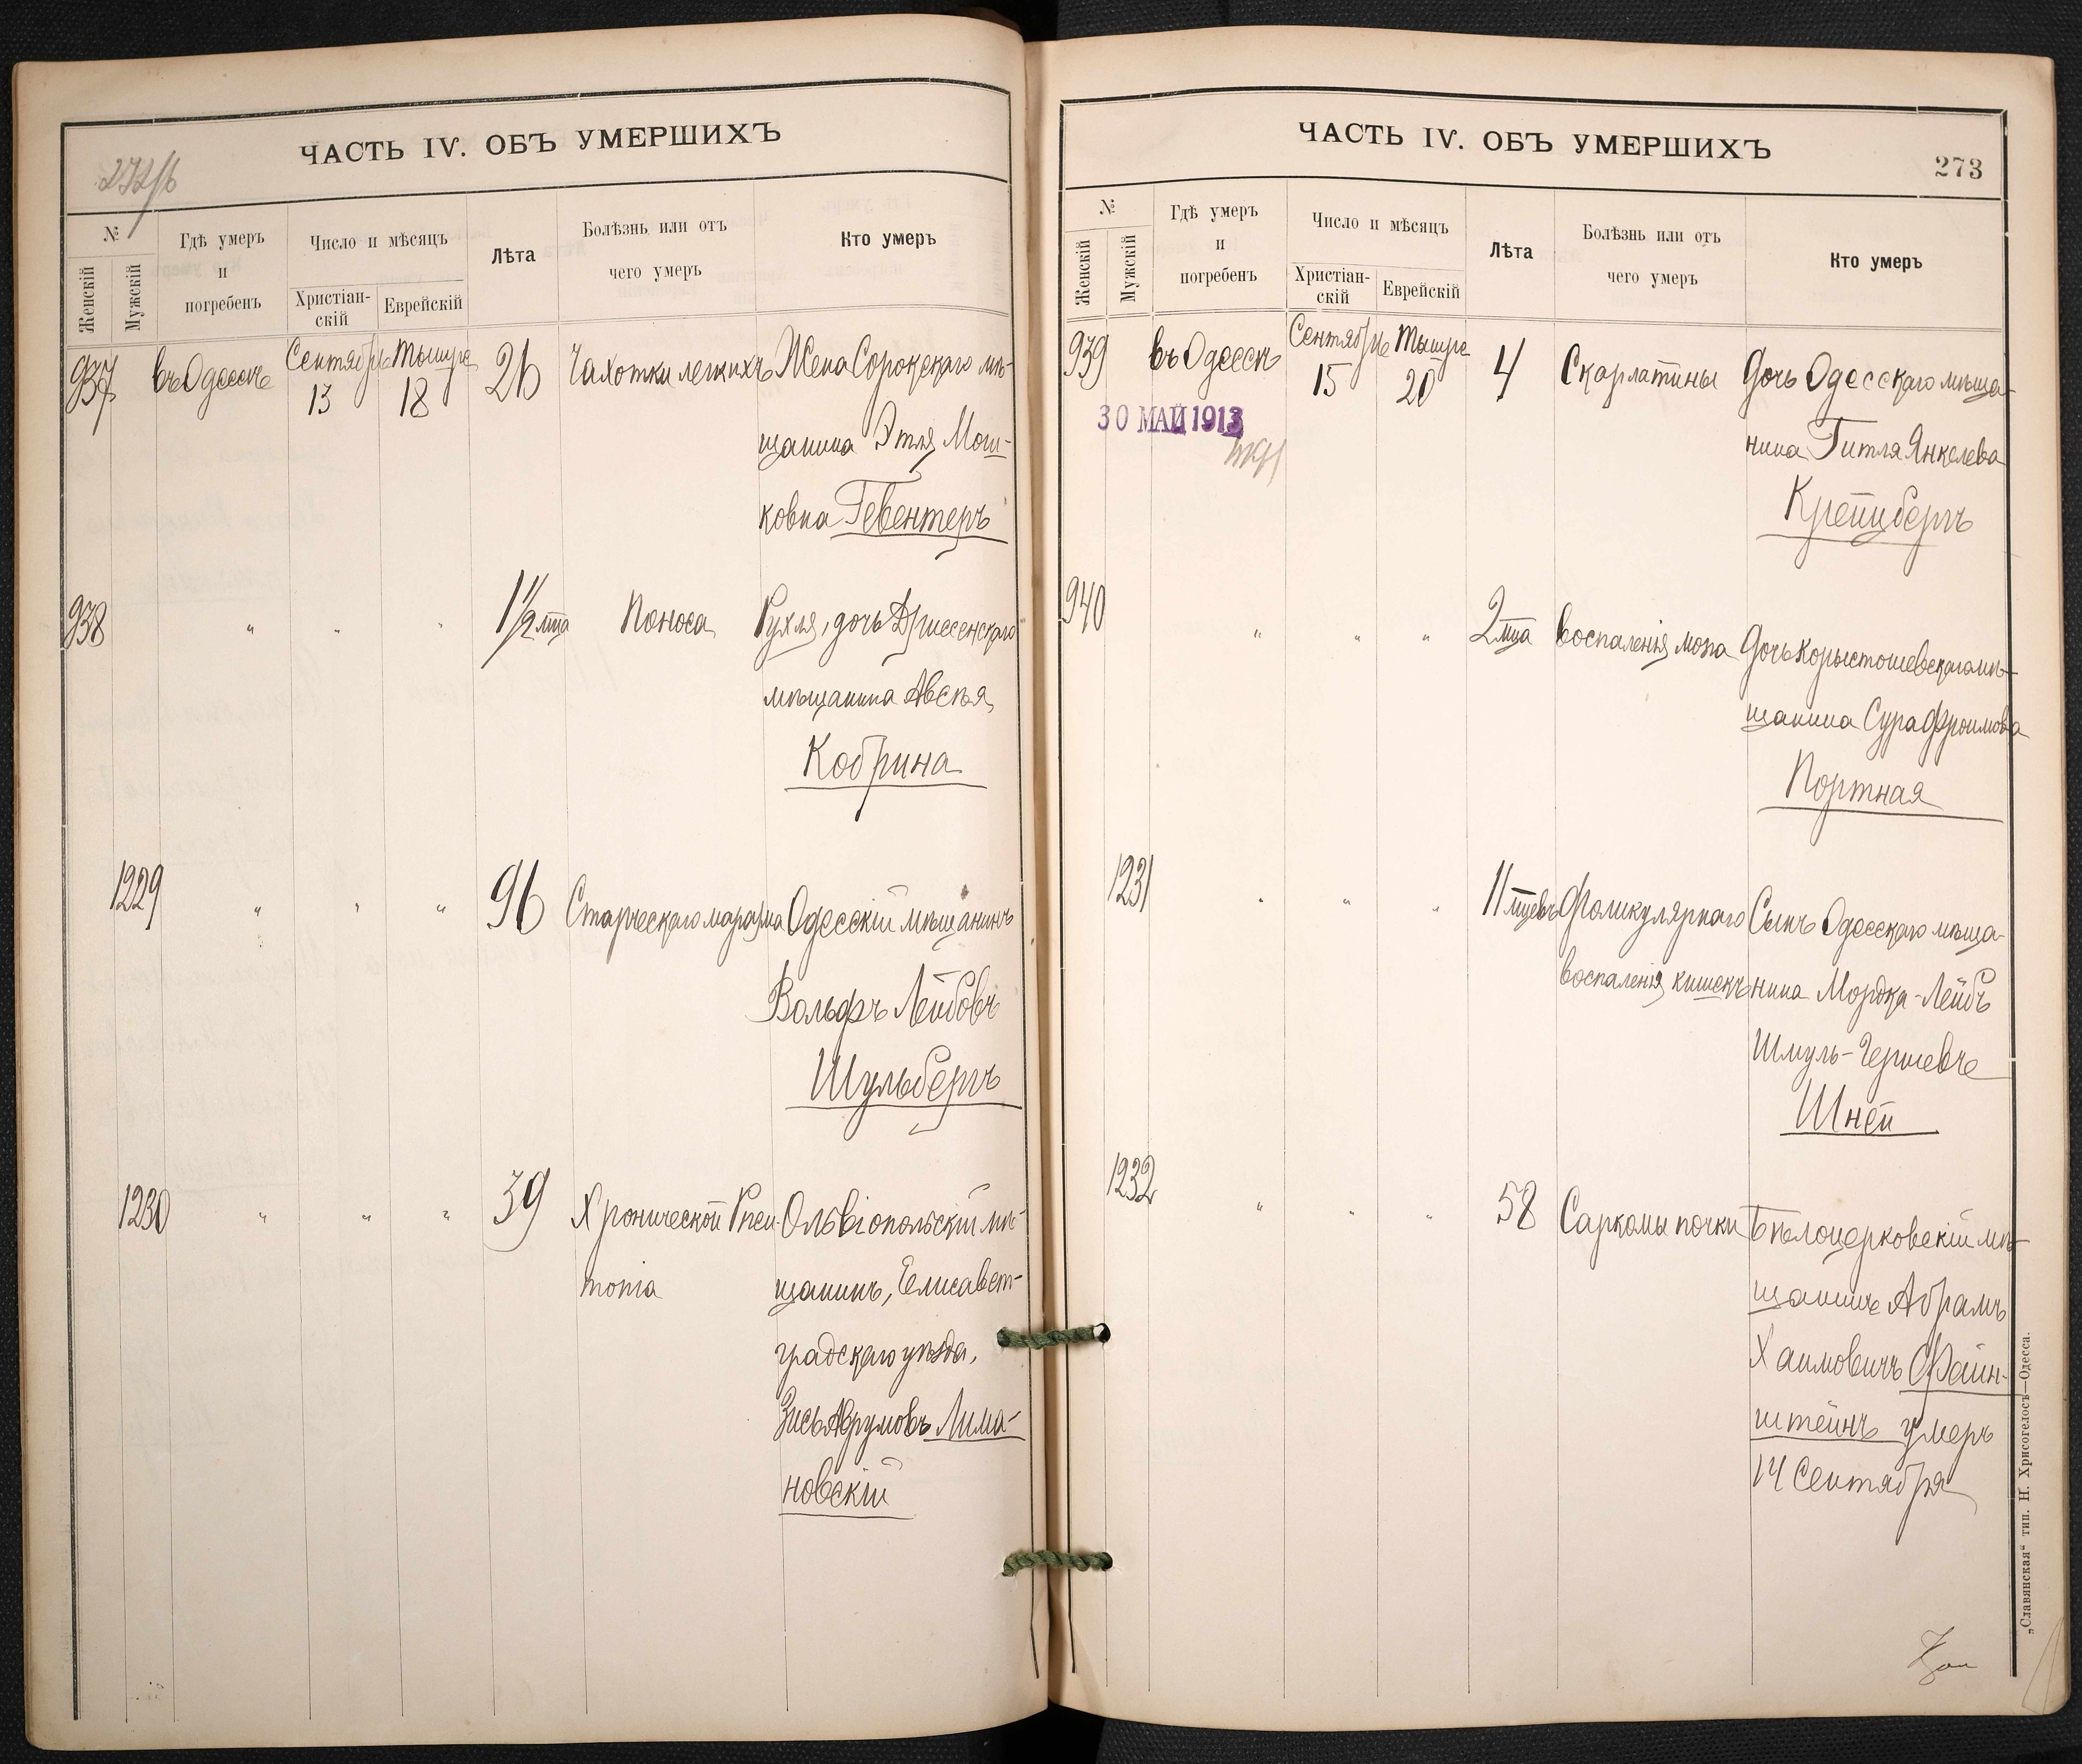 ЧАСТЬ IV. ОБЪ УМЕРШИХЪ
№
Женскій
Мужскій
Гдѣ умеръ
и
погребенъ
Число и мѣсяцъ
Христіан-
скій
Еврейскій
Лѣта
Болѣзнь или отъ
чего умеръ
Кто умеръ
937 въ Одессѣ Сентября 13 Тышре 18 26 Чахотки легкихъ Жена Сорокскаго мѣ-
щанина Этля Мош-
ковна Гевентеръ
938 " " " 1 1/2 мца Поноса Рухля, дочь Дриссенскаго
мѣщанина Авсѣя
Кобрина
1229 " " " 96 Старческаго маразма Одесскій мѣщанинъ
Вольфъ Лейбовъ
Шульбергъ
1230 " " " 39 Хронической Ольвіопольскій мѣ-
щанинъ, Елисавет-
градскаго уѣзда,
Зись Аврумовъ Лима-
новскій
ЧАСТЬ IV. ОБЪ УМЕРШИХЪ
273
№
Женскій
Мужскій
Гдѣ умеръ
и
погребенъ
Число и мѣсяцъ
Христіан-
скій
Еврейскій
Лѣта
Болѣзнь или отъ
чего умеръ
Кто умеръ
939 въ Одессѣ Сентября 15 Тышре 20 4 Скарлатины Дочь Одесскаго мѣща-
нина Гитля Янкелева
Крейцбергъ
30 МАЙ 1913
940 " " " 2 мца Воспаленія мозга Дочь Коростошевскаго мѣ-
щанина Сура Фроимова
Портная
1231 " " " 11 мцевъ Фоликулярнаго Сынъ Одесскаго мѣща-
воспаленія кишекъ нина Мордка-Лейбъ
Шмуль-Гершевъ
Шней
1232 " " " 58 Саркомы почки Бѣлоцерковскій мѣ-
щанинъ Абрамъ
Хаимовичъ Файн-
штейнъ умеръ
14 Сентября
„Славянская“ тип. Н. Хрисогелосъ—Одесса.